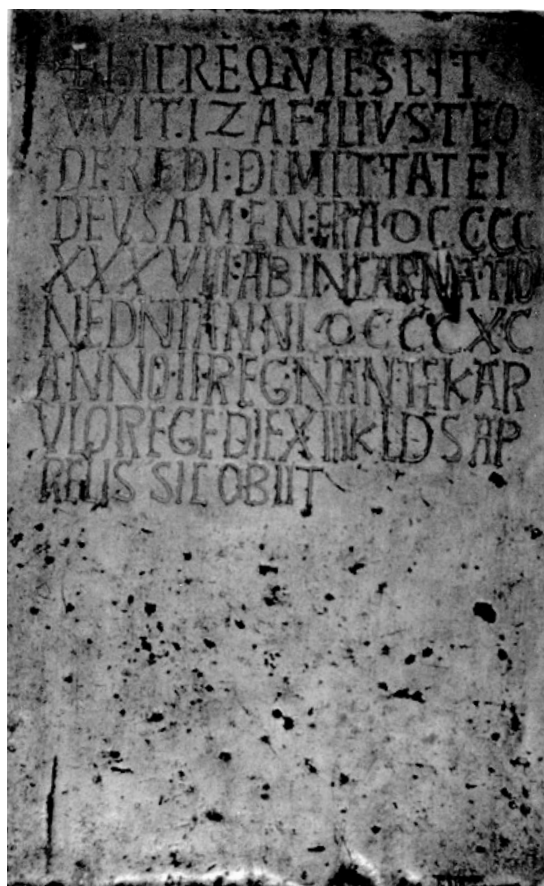 + HIC REQVIESCIT
VVITIZA FILIVS TEO
DEREDI·DIMITTAT EI
DEVS AMEN: ERA DCCCC
XXXVII: AB INCARNATIO
NE DNI ANNI DCCCXC
ANNO·II·REGNANTE KAR
VLO REGE DIE XIII KLDS AP
RELIS SIC OBIIT